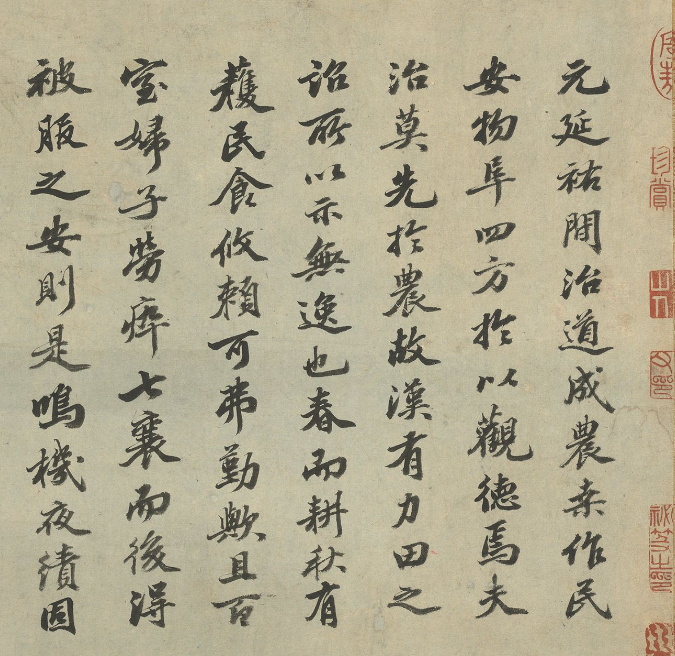 元延祐間治道成農桒作民
安物阜四方於以觀德焉夫
治莫先於農故漢有力田之
詔所以示無逸也春而耕秋有
穫民食攸賴可弗勤歟且百
室婦子勞瘁七襄而後得
被服之安則是鳴機夜績固
珍賞